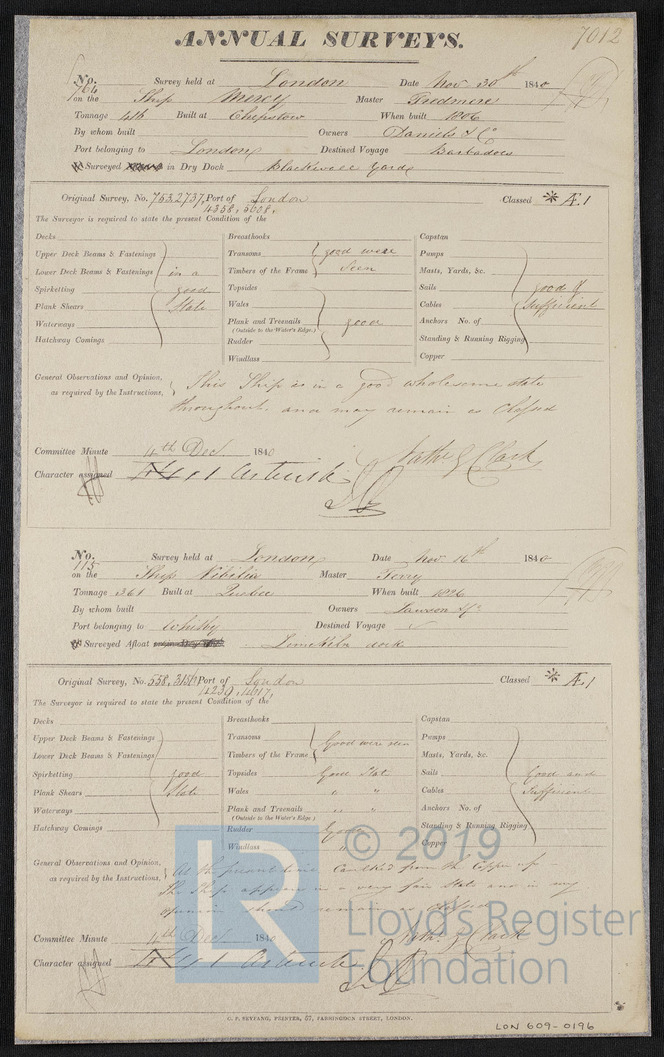 ANNUAL SURVEYS.
7012
No. 764 Survey held at London Date Nov. 30th 1840
on the Ship Mercy Master
Tonnage 416 Built at Chepstow When built 1806
By whom built Owners Daniels & Co
Port belonging to London Destined Voyage Barbadoes
Surveyed in Dry Dock Blackwall Yard
Original Survey, No. 753, 2737, Port of London Classed * Æ.1
4358, 5608,
The Surveyor is required to state the present Condition of the
Decks Breasthooks Capstan
Upper Deck Beams & Fastenings Transoms good were Pumps
Lower Deck Beams & Fastenings in a Timbers of the Frame seen Masts, Yards, &c.
Spirketting good Topsides Sails good &
Plank Shears State Wales Cables Sufficient
Waterways Plank and Treenails good Anchors No. of
(Outside to the Water's Edge.)
Hatchway Comings Rudder Standing & Running Rigging
Windlass Copper
General Observations and Opinion, This Ship is in a good wholesome state
as required by the Instructions, throughout and may remain as classed
Committee Minute 4th Decr. 1840 Nathl. G Clark
Character assigned 1 Asterisk
No. 115 Survey held at London Date Nov. 16th 1840
on the Ship Nibilia Master Terry
Tonnage 361 Built at Quebec When built 1826
By whom built Owners
Port belonging to Whitby Destined Voyage
Surveyed Afloat Limekiln dock
Original Survey, No. 558, Port of London Classed * Æ.1
The Surveyor is required to state the present Condition of the
Decks Breasthooks Capstan
Upper Deck Beams & Fastenings Transoms Good were seen Pumps
Lower Deck Beams & Fastenings Timbers of the Frame Masts, Yards, &c.
Spirketting good Topsides Good State Sails Good and
Plank Shears State Wales " " Cables Sufficient
Waterways Plank and Treenails " " Anchors No. of
(Outside to the Water's Edge)
Hatchway Comings Rudder Good Standing & Running Rigging
Windlass Copper
General Observations and Opinion, At the present time Caulked from the Copper up
as required by the Instructions, The Ship appears in a very fair State and in my
opinion should remain as classed
Committee Minute 4th Decr. 1840 Nathl. G Clark
Character assigned 1 Asterisk
© 2019
LR
Lloyd's Register
Foundation
C. F. SEYFANG, PRINTER, 57, FARRINGDON STREET, LONDON.
LON 609-0196